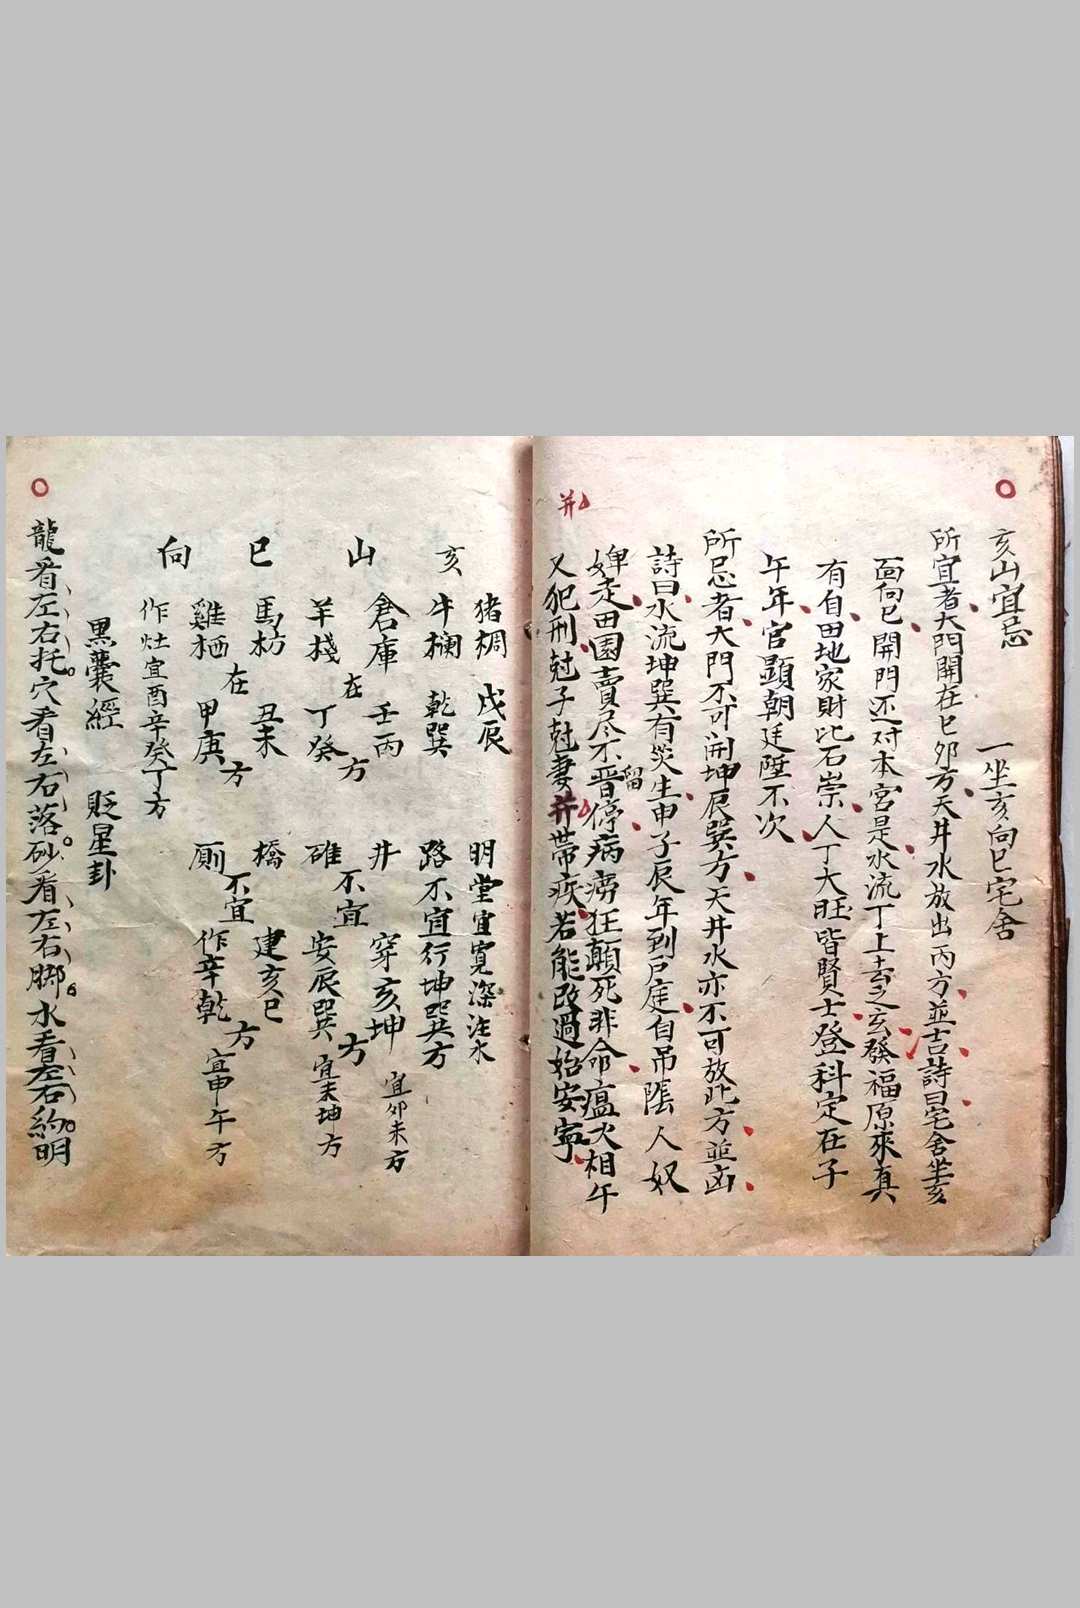 亥山宜忌
一坐亥向巳宅舍
所宜者大門開在巳丙方天井水放出丙方並吉詩曰宅舍坐亥
面向巳開門还对本宮是水流丁上去之玄發福原來真
有自田地家財比石崇人丁大旺皆賢士登科定在子
午年官顯朝廷陞不次
所忌者大門不可開坤辰巽方天井水亦不可放此方並凶
詩曰水流坤巽有災生申子辰年到戶庭自吊陰人奴
婢走田園賣尽不留停病痨狂顛死非命瘟火相午
又犯刑尅子尅妻并帶疾若能改過始安寧
并
猪椆 戊辰 明堂宜寬深注水
亥 牛欄 乾巽 路不宜行坤巽方
倉庫在壬丙方 井不宜穿亥坤方 宜卯未方
山 羊棧 丁癸 碓 安辰巽 宜未坤方
巳 馬枋在丑未方 橋不宜建亥巳方
雞栖 甲庚 厠 作辛乾 宜申午方
向 作灶宜酉辛癸丁方
黑囊經 貶星卦
龍看左右托穴看左右落砂看左右脚水看左右約明